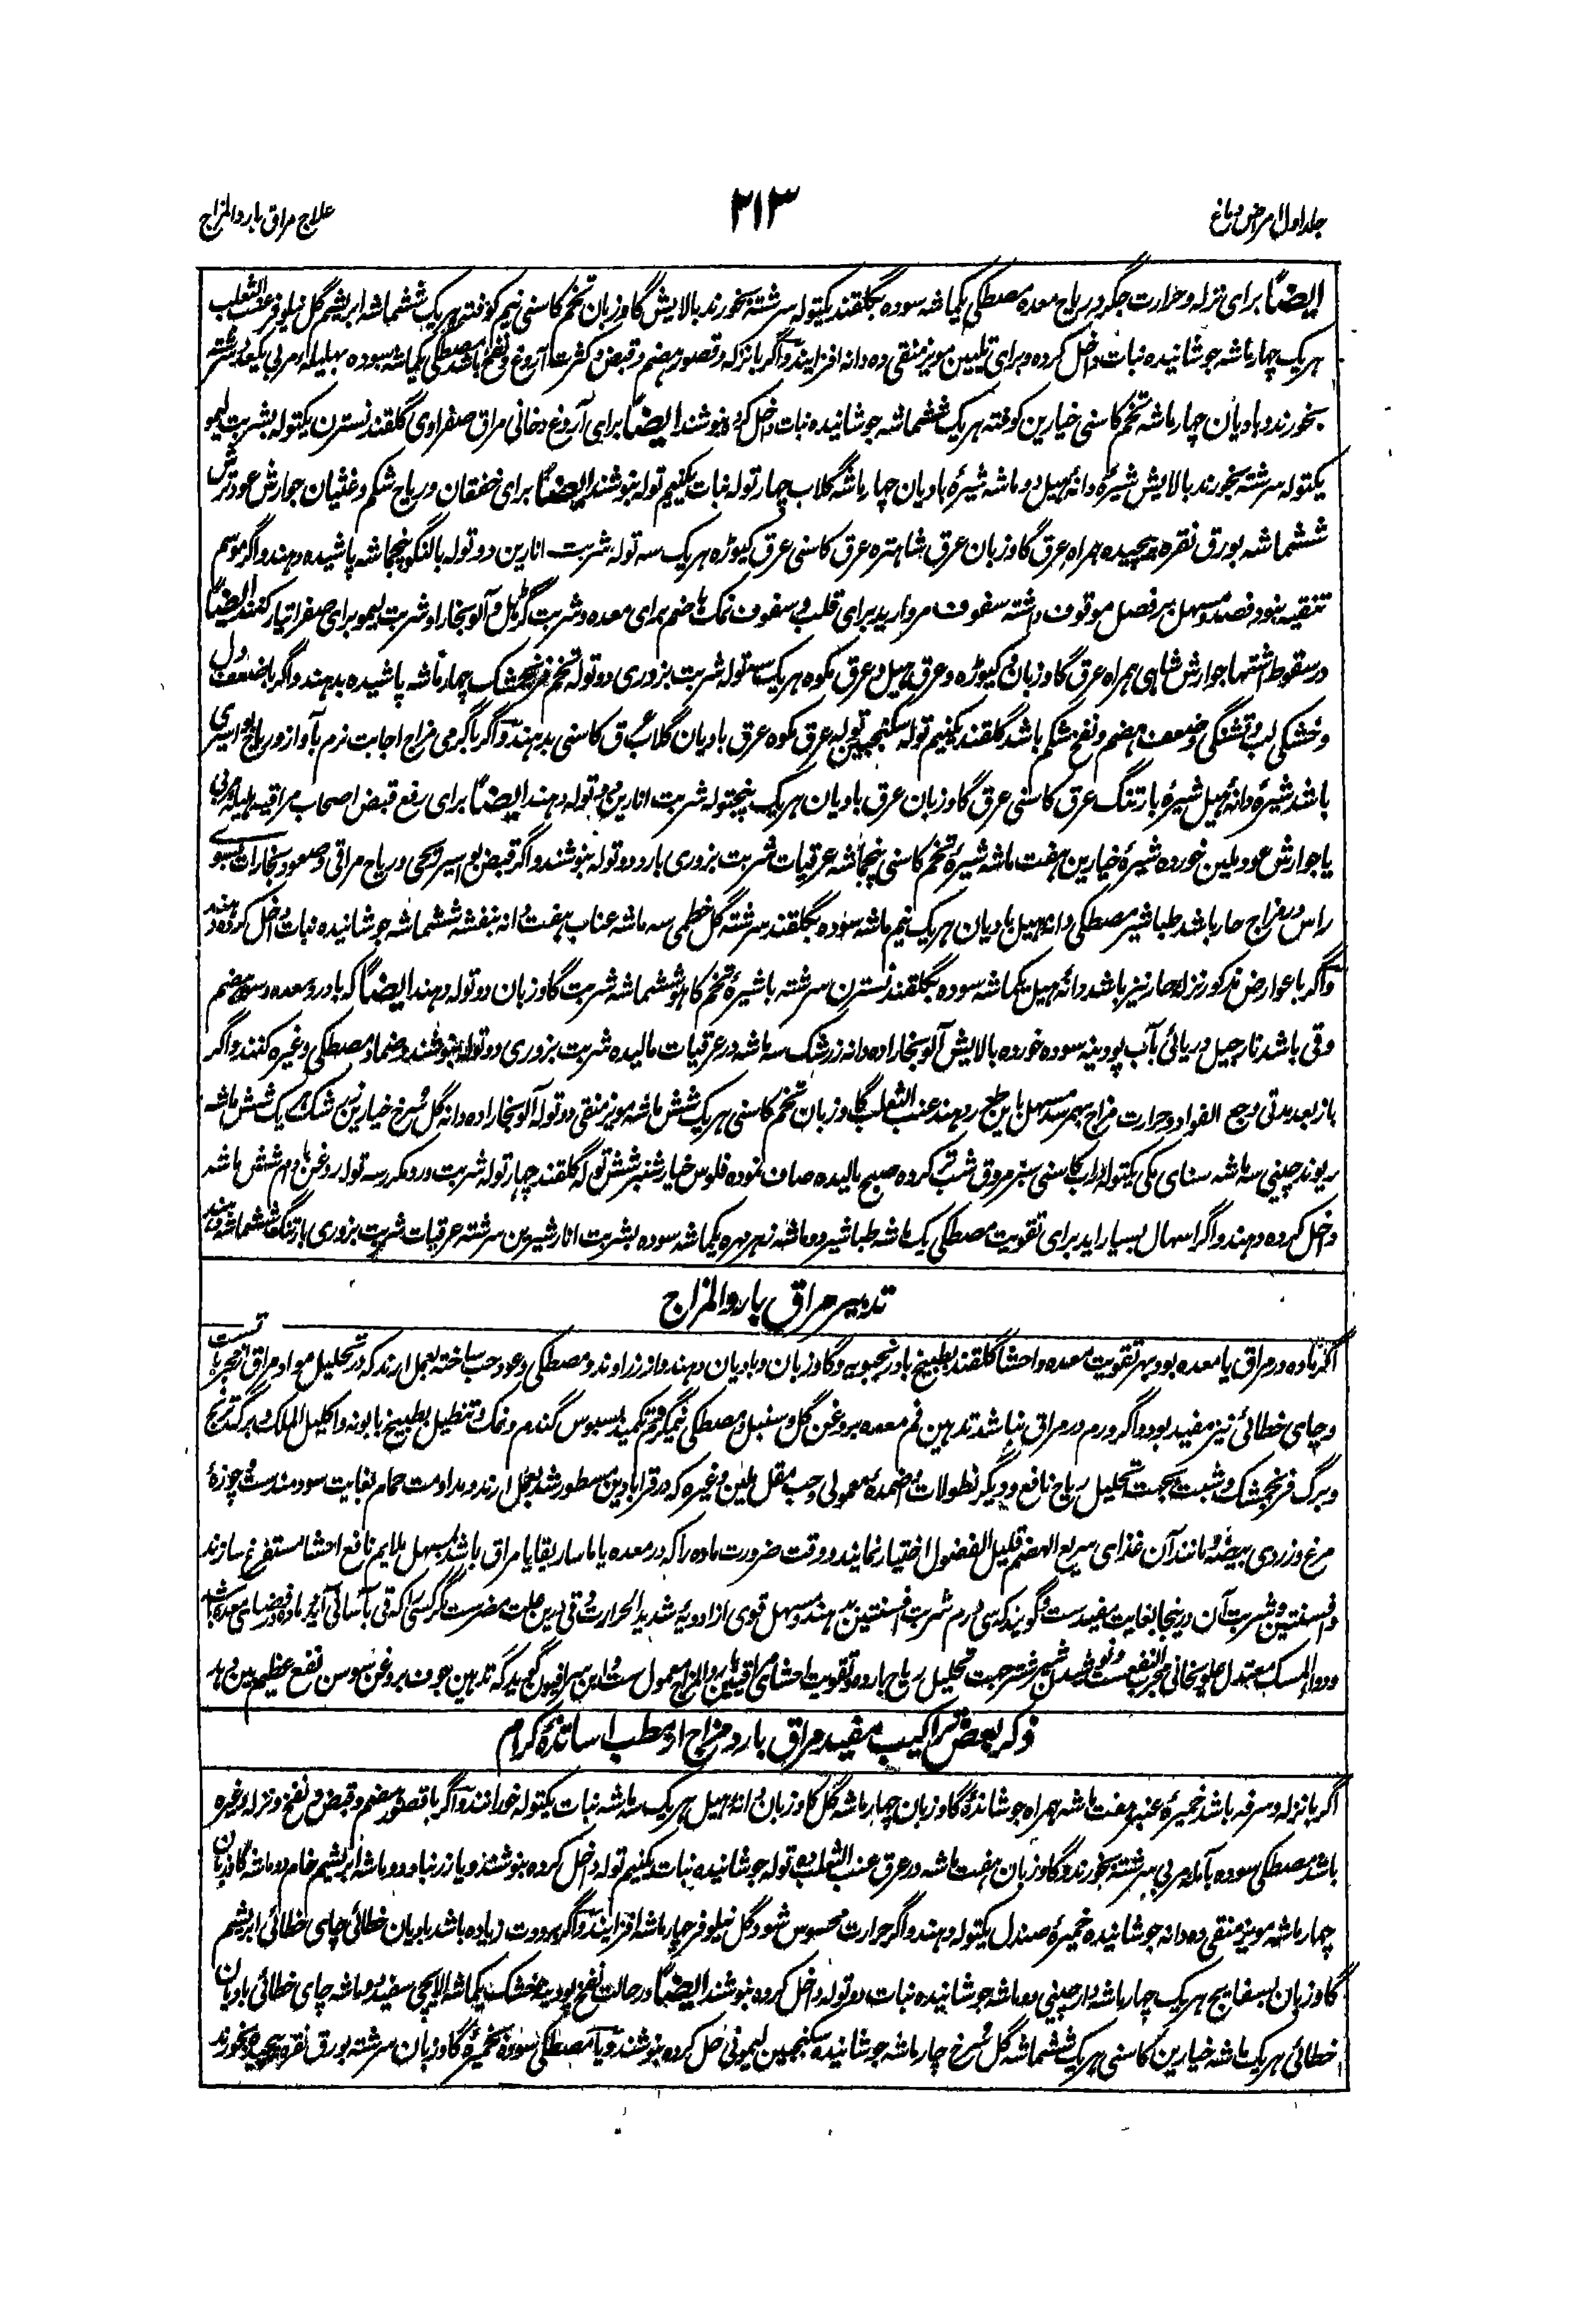 جلد اول امراض دماغ
۲۱۳
علاج مراق بارد المزاج
ایضاً برای نزله و حرارت جگر و ریاح معده مصطکی یکماشه سوده بگلقند یکتوله سرشته بخورند بالایش گاوزبان تخم کاسنی نیم کوفته هریک ششماشه ابریشم گل نیلوفر عنب الثعلب
هریک چهارماشه جوشانیده نبات داخل کرده و برای تلیین مویز منقی ده دانه افزایند و اگر با نزله و قصور هضم و قبض و کثرت آروغ و نفخ باشد مصطکی یکماشه سوده بهلیله مربی یکعدد سرشته
بخورند و بادیان چهارماشه تخم کاسنی خیارین کوفته هریک ششماشه جوشانیده نبات داخل کرده بنوشند ایضاً برای آروغ دخانی مراق صفراوی گلقند نسترن یکتوله بشربت لیمو
یکتوله سرشته بخورند بالایش شیرهٔ دانهٔ هیل دو ماشه شیرهٔ بادیان چهارماشه گلاب چهار توله نبات یکنیم توله بنوشند ایضاً برای خفقان و ریاح شکم و غثیان جوارش عود ترش
ششماشه بورق نقره پیچیده همراه عرق گاوزبان عرق شاهتره عرق کاسنی عرق کیوڑه هریک سه توله شربت انارین دو توله بالنگو پنجماشه پاشیده دهند و اگر موسم
تنقیه بنود فصد و مسهل بر فصل موقوف داشته سفوف مروارید برای قلب و سفوف نمک هاضم برای معده و شربت گڑهل و آلوبخارا و شربت لیمو برای صفرا تیار کنند ایضاً
در سقوط اشتها جوارش شاهی همراه عرق گاوزبان و کیوڑه و عرق هیل و عرق مکوه هریک سه توله شربت بزوری دو توله تخم فرنجمشک چهارماشه پاشیده بدهند و اگر با ضعف دل
و خشکی لب و تشنگی و ضعف هضم و نفخ شکم باشد گلقند یکنیم توله سکنجبین توله عرق مکوه عرق بادیان گلاب عرق کاسنی بدهند و اگر با گرمی مزاج اجابت نرم با آواز و ریاح بواسیری
باشد شیرهٔ دانهٔ هیل شیرهٔ بارتنگ عرق کاسنی عرق گاوزبان عرق بادیان هریک پنجتوله شربت انارین دو توله دهند ایضاً برای رفع قبض اصحاب مراقیه هلیله مربی
یا جوارش عود ملین خورده شیرهٔ خیارین هفت ماشه شیرهٔ تخم کاسنی پنجماشه عرقیات شربت بزوری بارد دو توله بنوشند و اگر قبض بواسیر ریحی و ریاح مراقی و صعود بخارات بسوی
راس و مزاج حار باشد طباشیر مصطکی دانه هیل بادیان هریک نیم ماشه سوده بگلقند سرشته گل خطمی سه ماشه عناب هفت دانه بنفشه ششماشه جوشانیده نبات داخل کرده دهند
و اگر با عوارض مذکور نزله حار نیز باشد دانهٔ هیل یکماشه سوده بگلقند نسترن سرشته با شیرهٔ تخم کاهو ششماشه شربت گاوزبان دو توله دهند ایضاً که با درد معده و سوء هضم
و قی باشد نارجیل دریائی بآب پودینه سوده خورده بالایش آلوبخارا ده دانه زرشک سه ماشه در عرقیات مالیده شربت بزوری دو توله بنوشند و ضماد مصطکی وغیره کنند و اگر
باز بعد مدتی وجع الفواد و حرارت مزاج بهم رسد مسهل باین طرح دهند عنب الثعلب گاوزبان تخم کاسنی هریک شش ماشه مویز منقی دو توله آلوبخارا ده دانه گل سرخ خیارین زرشک هریک شش ماشه
ریوند چینی سه ماشه سنای مکی یکتوله در آب کاسنی سبز مروق شب تر کرده صبح مالیده صاف نموده فلوس خیارشنبر شش توله گلقند چهار توله شربت ورد مکرر سه توله روغن بادام شش ماشه
داخل کرده دهند و اگر اسهال بسیار آید برای تقویت مصطکی یک ماشه طباشیر دو ماشه زهرمهره یکماشه سوده بشربت انار شیرین سرشته عرقیات شربت بزوری بارتنگ ششماشه دهند
تدبیر مراق بارد المزاج
اگر ماده در مراق یا معده بود بهر تقویت معده و احشا گلقند بطبیخ بادرنجبویه و گاوزبان و بادیان دهند و از زراوند و مصطکی و عود حب ساخته بعمل آرند که در تحلیل مواد مراق از مجرباتست
و چای خطائی نیز مفید بود و اگر ورم در مراق نباشد تدهین فم معده بروغن گل و سنبل و مصطکی نیمگرم و تکمید بسبوس گندم و نمک و تنطیل بطبیخ بابونه و اکلیل الملک و برگ ترنج
و برگ فرنجمشک و شبت بجهت تحلیل ریاح نافع و دیگر نطولات و اضمدهٔ معمولی و حب مقل ملین وغیره که در قرابادین مسطور شد بعمل آرند و مداومت حمام بغایت سودمندست و چوزهٔ
مرغ و زردی بیضه و مانند آن غذای سریع الهضم قلیل الفضول اختیار نمایند و وقت ضرورت ماده را که در معده یا ماساریقا یا مراق باشد بمسهل ملایم نافع احشا مستفرغ سازند
و افسنتین و شربت آن درینجا بغایت مفیدست و گویند که سی درم شربت افسنتین بدهند و مسهل قوی از ادویهٔ شدید الحرارت و قی درین علت مضرست مگر کسی را که قی بآسانی آید و ماده در فضای معده باشد
و دواء المسک معتدل علویخانی مجرب النفع ست و نوشیدن شیر شتر جهت تحلیل ریاح بارده و تقویت احشای مراقیین بارد المزاج معمول ست و ابن سرافیون گوید که تدهین جوف بروغن سوسن نفع عظیم می دهد
ذکر بعض تراکیب مفید مراق بارد مزاج از مطب اساتذهٔ کرام
اگر با نزله و سرفه باشد خمیرهٔ عنبر هفت ماشه همراه جوشاندهٔ گاوزبان چهارماشه گل گاوزبان دانه هیل هریک سه ماشه نبات یکتوله خورانند و اگر با قصور هضم و قبض و نفخ و نزله وغیره
باشد مصطکی سوده بآمله مربی سرشته بخورند و گاوزبان هفت ماشه در عرق عنب الثعلب ده توله جوشانیده نبات یکنیم توله داخل کرده بنوشند و یا زرنباد دو ماشه ابریشم خام دو ماشه گاوزبان
چهارماشه مویز منقی ده دانه جوشانیده خمیرهٔ صندل یکتوله دهند و اگر حرارت محسوس شود گل نیلوفر چهارماشه افزایند و اگر برودت زیاده باشد بادیان خطائی چای خطائی ابریشم
گاوزبان بسفایج هریک چهارماشه دارچینی دو ماشه جوشانیده نبات دو توله داخل کرده بنوشند ایضاً در حالت نفخ پودینه خشک یکماشه الایچی سفید دو ماشه چای خطائی بادیان
خطائی هریک ماشه خیارین کاسنی هریک ششماشه گل سرخ چارماشه جوشانیده سکنجبین لیمونی حل کرده بنوشند و یا مصطکی سوده بخمیرهٔ گاوزبان سرشته بورق نقره پیچیده بخورند